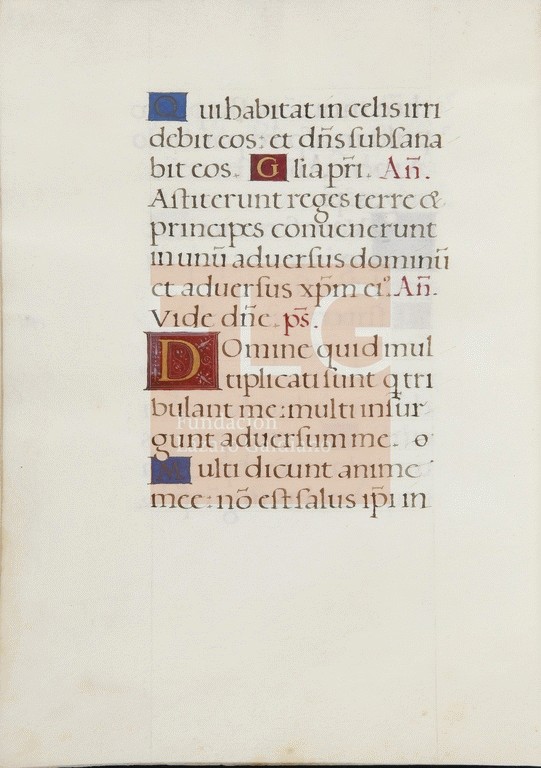 Qui habitat in celis irri
debit eos: et dñs ſubſana
bit eos. Glia pr̃i. Añ.
Aſtiterunt reges terre &
principes conuenerunt
in unũ aduerſus dominũ
et aduerſus xp̃m ei⁹. Añ.
Vide dñe. ps̃.
Domine quid mul
tiplicati ſunt q̃ tri
bulant me: multi inſur
gunt aduerſum me.
Multi dicunt anime
mee: nõ eſt ſalus ip̃i in
FLG
Fundación
Lázaro Galdiano